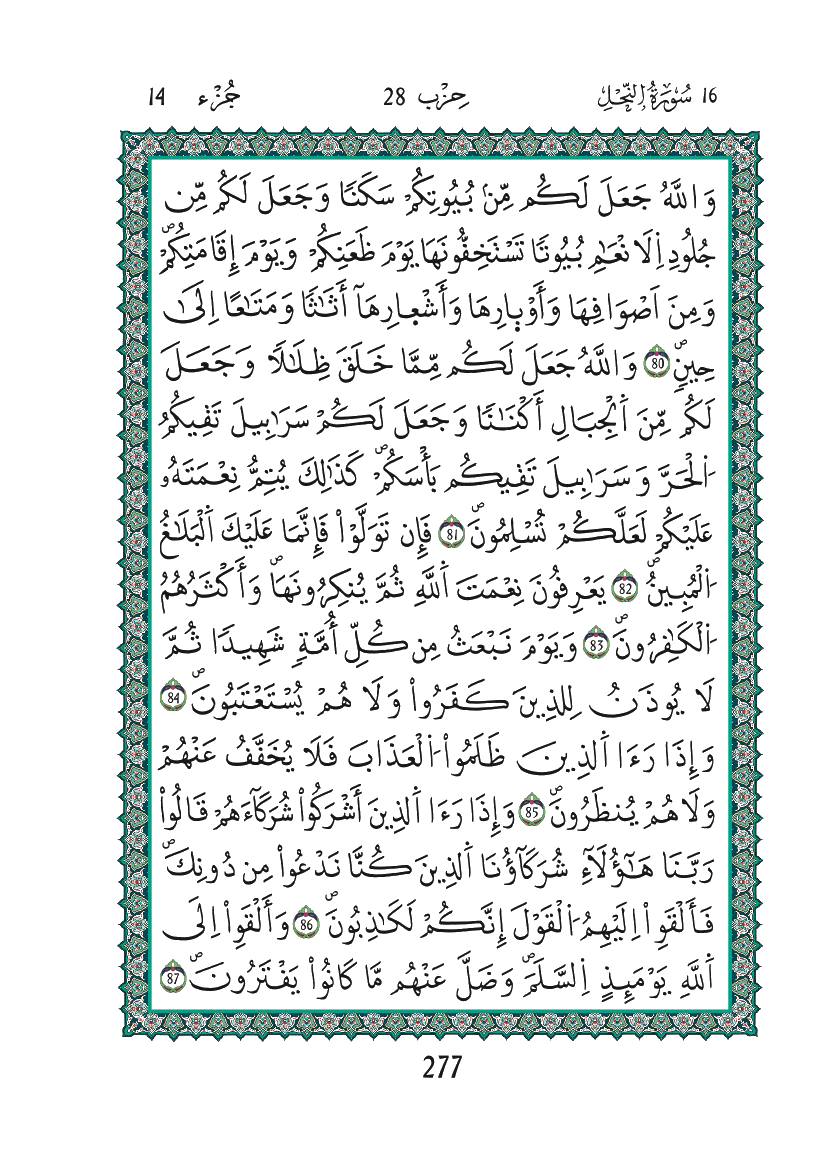 16 سُورَةُ النَّحْلِ حِزْب 28 جُزْء 14
وَاللَّهُ جَعَلَ لَكُم مِّنۢ بُيُوتِكُمْ سَكَنٗا وَجَعَلَ لَكُم مِّن
جُلُودِ اِ۬لَانْعَٰمِ بُيُوتٗا تَسْتَخِفُّونَهَا يَوْمَ ظَعَنِكُمْ وَيَوْمَ إِقَامَتِكُمْۖ
وَمِنَ اَصْوَافِهَا وَأَوْبِارِهَا وَأَشْعِارِهَآ أَثَٰثٗا وَمَتَٰعًا اِلَىٰ
حِينٖۖ 80 وَاللَّهُ جَعَلَ لَكُم مِّمَّا خَلَقَ ظِلَٰلٗا وَجَعَلَ
لَكُم مِّنَ اَ۬لْجِبَالِ أَكْنَٰنٗا وَجَعَلَ لَكُمْ سَرَٰبِيلَ تَقِيكُمُ
اُ۬لْحَرَّ وَسَرَٰبِيلَ تَقِيكُم بَأْسَكُمْۖ كَذَٰلِكَ يُتِمُّ نِعْمَتَهُۥ
عَلَيْكُمْ لَعَلَّكُمْ تُسْلِمُونَۖ 81 فَإِن تَوَلَّوْاْ فَإِنَّمَا عَلَيْكَ اَ۬لْبَلَٰغُ
اُ۬لْمُبِينُۖ 82 يَعْرِفُونَ نِعْمَتَ اَ۬للَّهِ ثُمَّ يُنكِرُونَهَاۖ وَأَكْثَرُهُمُ
اُ۬لْكَٰفِرُونَۖ 83 وَيَوْمَ نَبْعَثُ مِن كُلِّ أُمَّةٖ شَهِيدٗا ثُمَّ
لَا يُوذَنُ لِلذِينَ كَفَرُواْ وَلَا هُمْ يُسْتَعْتَبُونَۖ 84
وَإِذَا رَءَا اَ۬لذِينَ ظَلَمُواْ اُ۬لْعَذَابَ فَلَا يُخَفَّفُ عَنْهُمْ
وَلَا هُمْ يُنظَرُونَۖ 85 وَإِذَا رَءَا اَ۬لذِينَ أَشْرَكُواْ شُرَكَآءَهُمْ قَالُواْ
رَبَّنَا هَٰٓؤُلَآءِ شُرَكَآؤُنَا اَ۬لذِينَ كُنَّا نَدْعُواْ مِن دُونِكَۖ
فَأَلْقَوِاْ اِلَيْهِمُ اُ۬لْقَوْلَ إِنَّكُمْ لَكَٰذِبُونَۖ 86 وَأَلْقَوِاْ اِلَى
اَ۬للَّهِ يَوْمَئِذٍ اِ۬لسَّلَمَۖ وَضَلَّ عَنْهُم مَّا كَانُواْ يَفْتَرُونَۖ 87
277